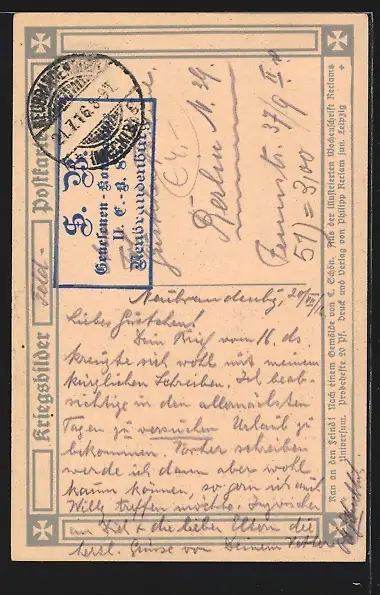 Kriegsbilder
Feld-
Postkarte
NEUBRANDENBURG
21.7.16.8-9V.
S. B.
Genesenen-Kom
II. E.-B.
Neubrandenburg
Berlin N. 39.
Fennstr. 37/9 II
Neubrandenbg, 20/VII
Liebes Gustchen!
Dein Brief vom 16. ds
kreuzte sich wohl mit meinem
kürzlichen Schreiben. Ich beab-
sichtige in den allernächsten
Tagen zu versuchen Urlaub zu
bekommen. Vorher schreiben
werde ich dann aber wohl
kaum können, so gern ich auch
Willy treffen möchte. Inzwischen
an Dich & die lieben Eltern die
herzl. Grüsse von Deinem Vetter
Ran an den Feind! Nach einem Gemälde von C. Schön. Aus der illustrierten Wochenschrift Reclams
Universum. Probehefte 20 Pf. Druck und Verlag von Philipp Reclam jun. Leipzig
51) = 3,00